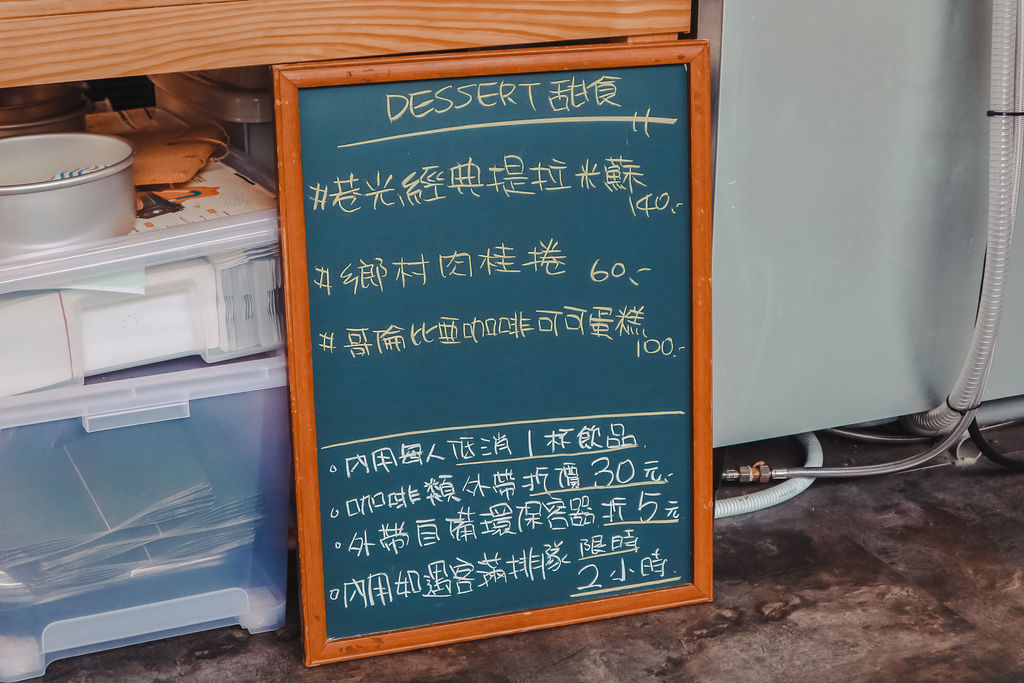 DESSERT 甜食
#巷光經典提拉米蘇
140.-
#鄉村肉桂捲 60.-
#哥倫比亞咖啡可可蛋糕
100.-
。內用每人低消1杯飲品.
。咖啡類外帶折價30元.
。外帶自備環保容器折5元
。內用如遇客滿排隊限時
2小時.